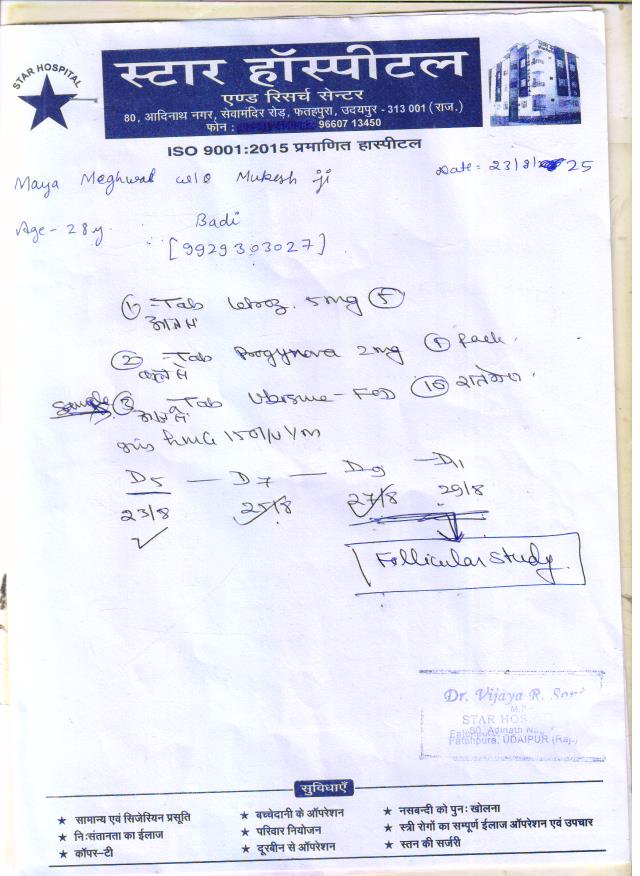 STAR HOSPITAL
स्टार हॉस्पीटल
एण्ड रिसर्च सेन्टर
80, आदिनाथ नगर, सेवामंदिर रोड़, फतहपुरा, उदयपुर - 313 001 (राज.)
फोन : 96607 13450
ISO 9001:2015 प्रमाणित हास्पीटल
Maya Meghwal w/o Mukesh ji
Date: 23/8/25
Age - 28 y.
Badi
[9929303027]
① Tab Letroz. 5mg ⑤
② Tab Progynova 2mg ① pack.
③ Tab
HMG 150 IU I/M
D5 — D7 — D9 — D11
23/8 25/8 27/8 29/8
Follicular study
Dr. Vijaya R. Soni
STAR HOS
80, Adinath
Fatehpura, UDAIPUR (Raj.)
सुविधाएँ
★ सामान्य एवं सिजेरियन प्रसूति ★ बच्चेदानी के ऑपरेशन ★ नसबन्दी को पुनः खोलना
★ निःसंतानता का ईलाज ★ परिवार नियोजन ★ स्त्री रोगों का सम्पूर्ण ईलाज ऑपरेशन एवं उपचार
★ कॉपर-टी ★ दूरबीन से ऑपरेशन ★ स्तन की सर्जरी